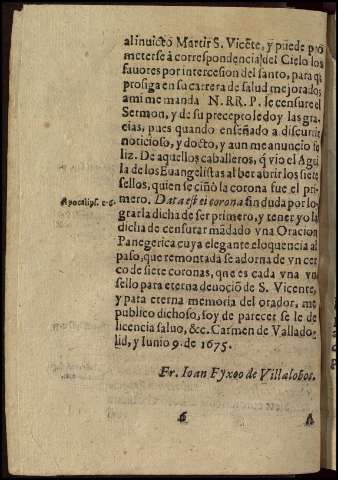 al invicto Martir S. Vicẽte, y puede pro
meterse à correspondencia del Cielo los
fauores por intercesion del santo, para q̃
prosiga en su carrera de salud mejorado;
a mi me manda N. RR. P. le censure el
Sermon, y de su precepto le doy las gra-
cias, pues quando enseñado a discurrir
noticioso, y docto, y aun me anuncio fe
liz. De aquellos caballeros, q̃ vio el Agui
la de los Euangelistas al ber abrir los siete
sellos, quien se ciñò la corona fue el pri-
Apocalips. c. 6. mero. Data est ei corona sin duda por lo-
grar la dicha de ser primero, y tener yo la
dicha de censurar mãdado vna Oracion
Panegerica cuya elegante eloquencia al
paso, que remontada se adorna de vn cer
co de siete coronas, que es cada vna vn
sello para eterna deuociõ de S. Vicente,
y para eterna memoria del orador, me
publico dichoso, soy de parecer se le de
licencia saluo, &c. Carmen de Vallado-
lid, y Iunio 9. de 1675.
Fr. Ioan Fyxoo de Villalobos.
6 A